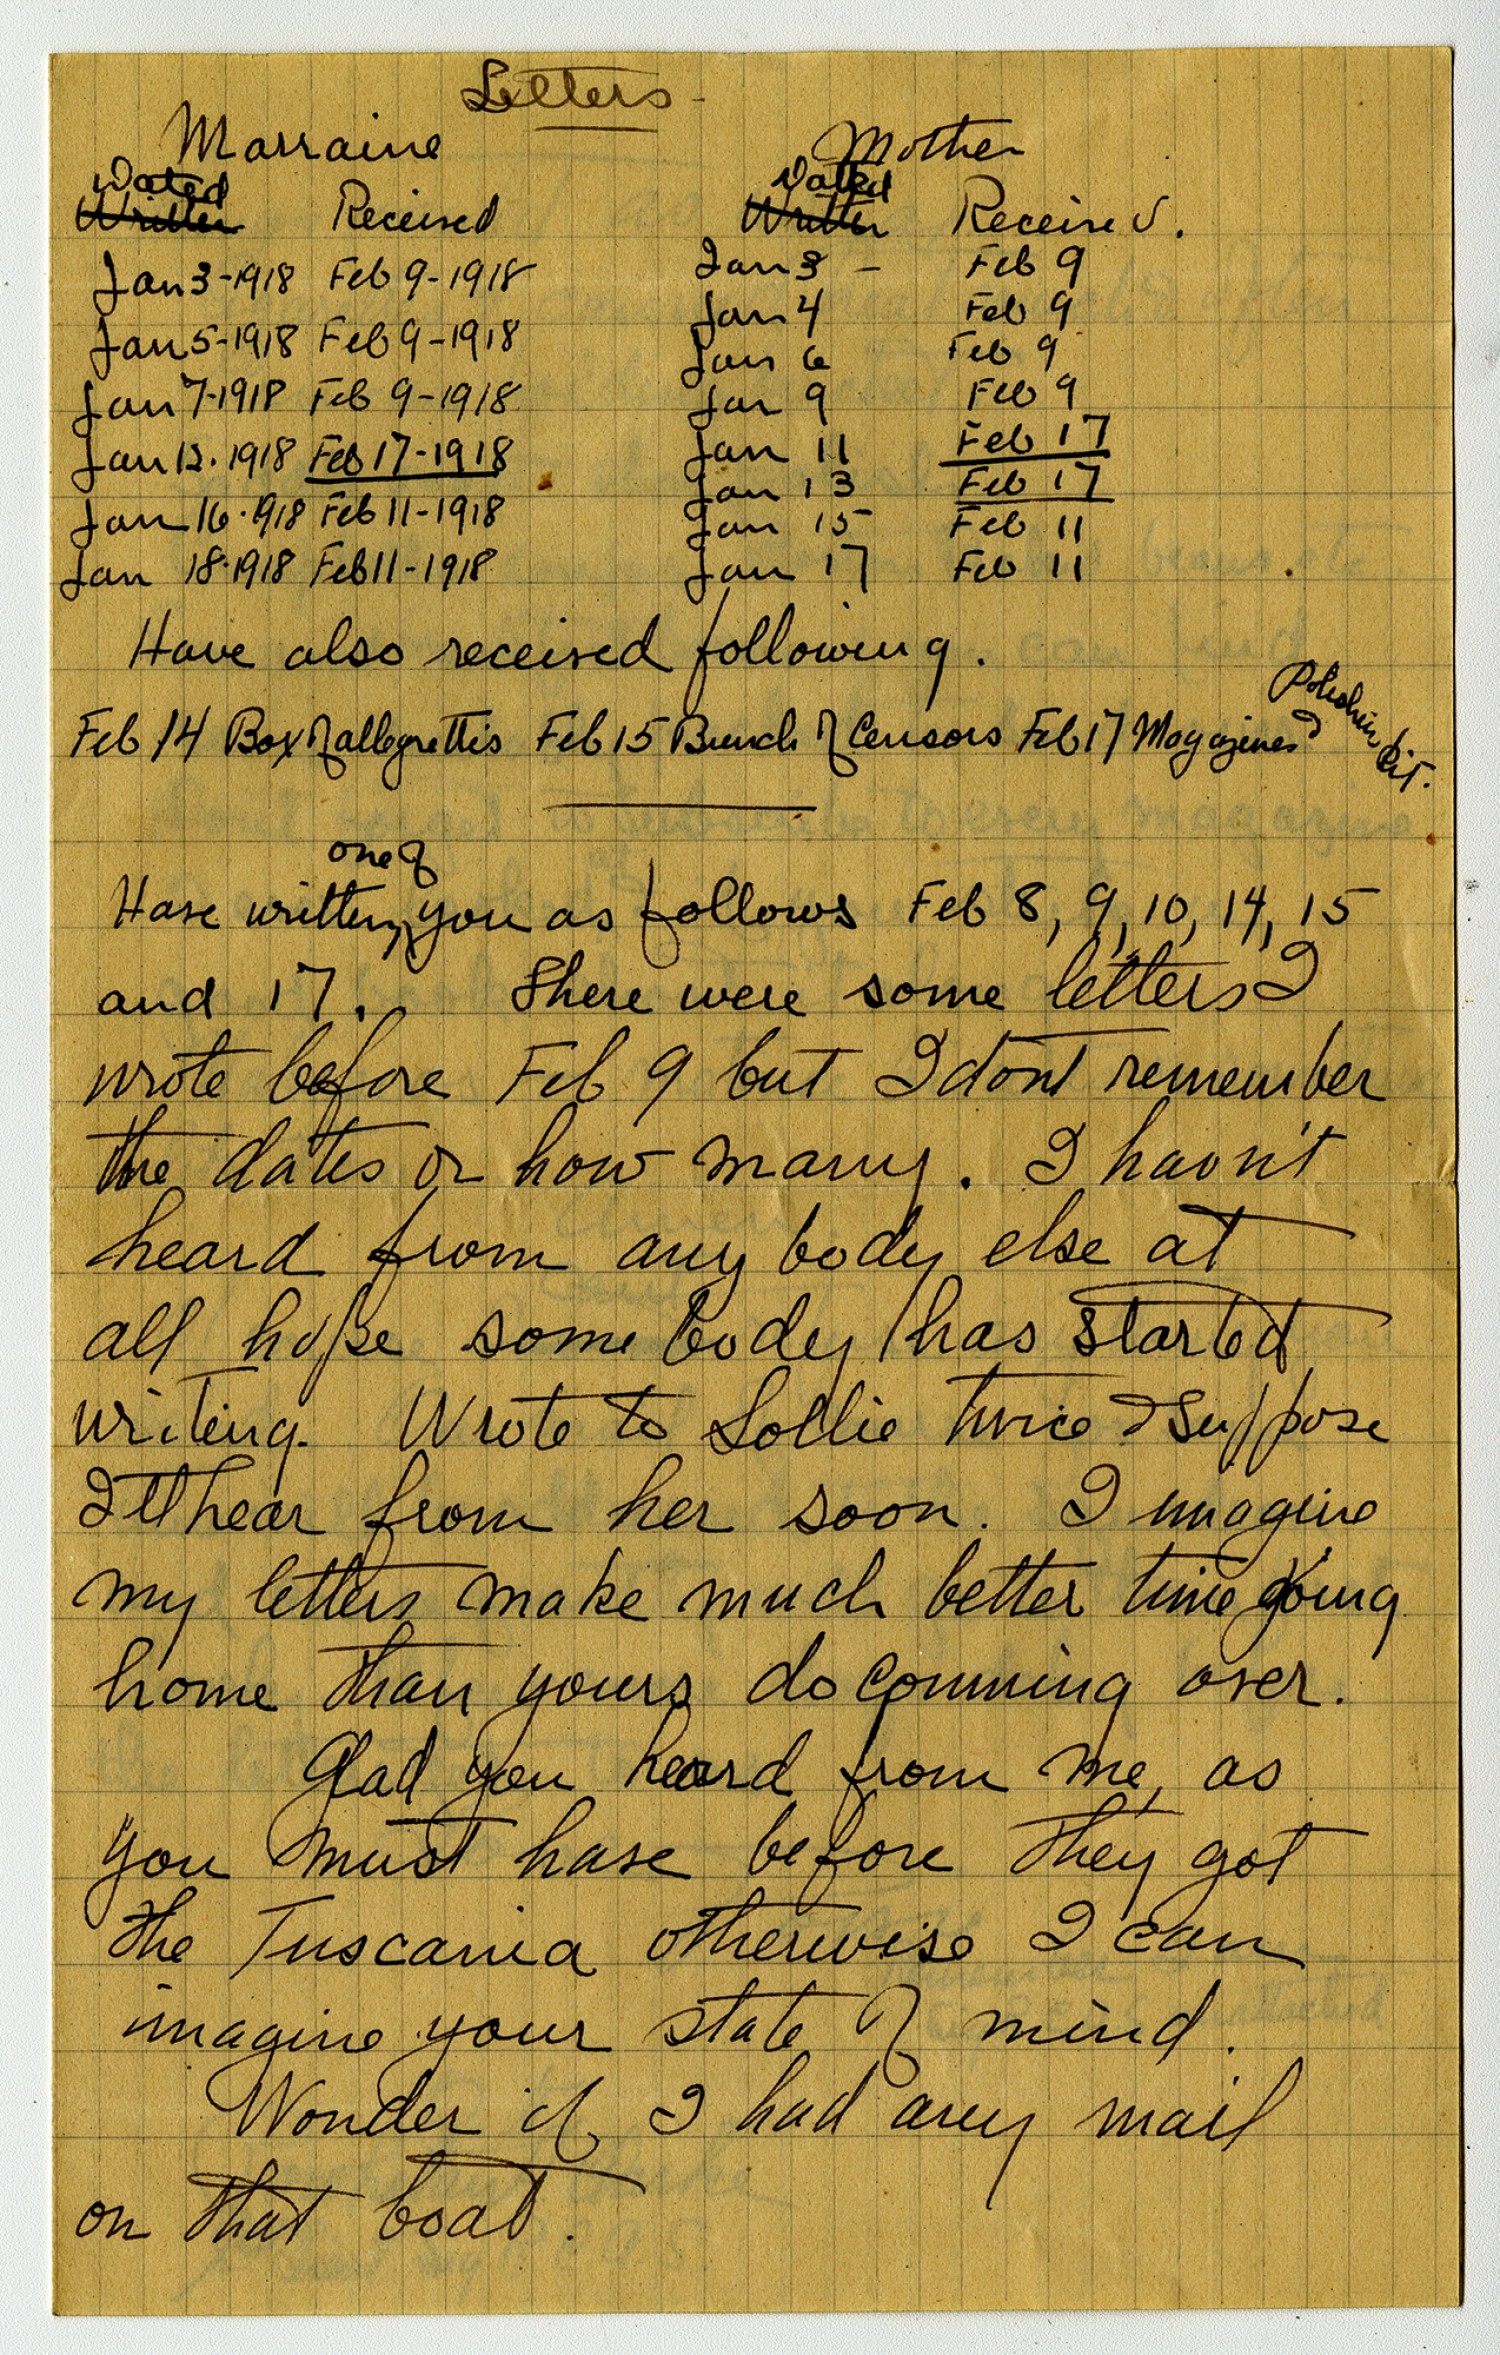 Letters
Marraine Mother
Dated Dated
Written Received Written Received.
Jan 3-1918 Feb 9-1918 Jan 3 - Feb 9
Jan 5-1918 Feb 9-1918 Jan 4 Feb 9
Jan 7-1918 Feb 9-1918 Jan 6 Feb 9
Jan 12-1918 Feb 17-1918 Jan 9 Feb 9
Jan 16-1918 Feb 11-1918 Jan 11 Feb 17
Jan 18-1918 Feb 11-1918 Jan 13 Feb 17
Jan 15 Feb 11
Jan 17 Feb 11
Have also received following.
Feb 14 Box of allegrettis Feb 15 Bunch of Censors Feb 17 Magazines & Polishin Kit.
one of
Have written, you as follows Feb 8, 9, 10, 14, 15
and 17. There were some letters I
wrote before Feb 9 but I dont remember
the dates or how many. I havn't
heard from any body else at
all hope some body has started
writing. Wrote to Lollie twice I suppose
I'll hear from her soon. I imagine
my letters make much better time going
home than yours do comming over.
Glad you heard from me, as
you must have before they got
the Tuscania otherwise I can
imagine your state of mind.
Wonder if I had any mail
on that boat.